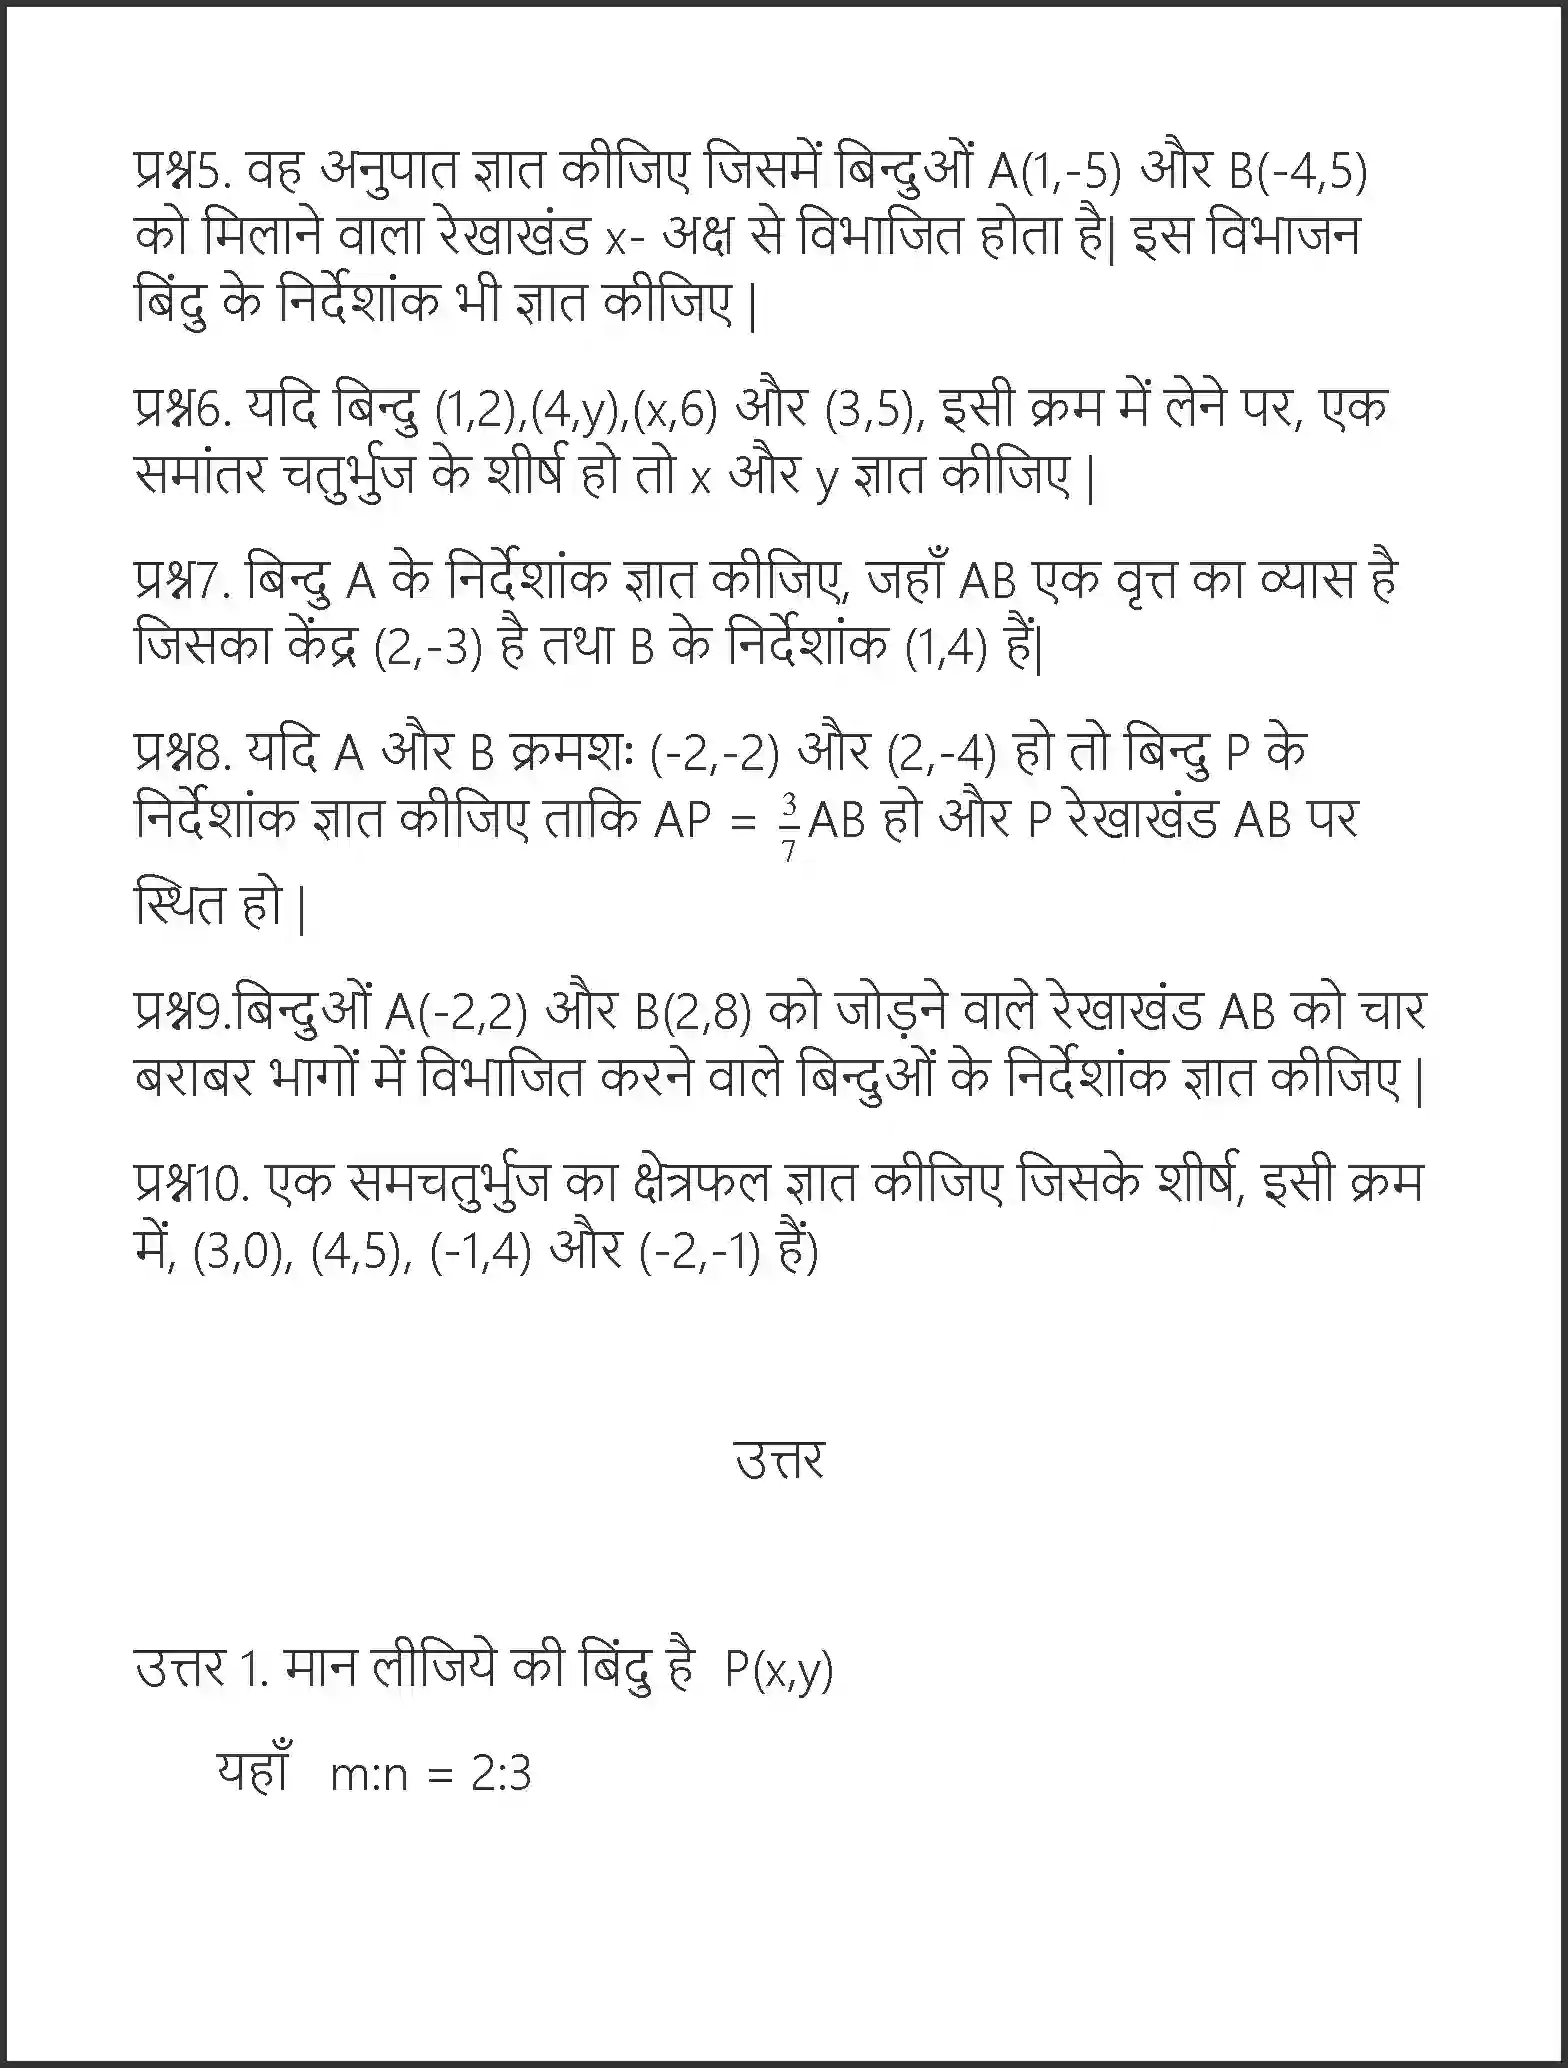 प्रश्न5. वह अनुपात ज्ञात कीजिए जिसमें बिन्दुओं A(1,-5) और B(-4,5)
को मिलाने वाला रेखाखंड x- अक्ष से विभाजित होता है| इस विभाजन
बिंदु के निर्देशांक भी ज्ञात कीजिए |
प्रश्न6. यदि बिन्दु (1,2),(4,y),(x,6) और (3,5), इसी क्रम में लेने पर, एक
समांतर चतुर्भुज के शीर्ष हो तो x और y ज्ञात कीजिए |
प्रश्न7. बिन्दु A के निर्देशांक ज्ञात कीजिए, जहाँ AB एक वृत्त का व्यास है
जिसका केंद्र (2,-3) है तथा B के निर्देशांक (1,4) हैं|
प्रश्न8. यदि A और B क्रमशः (-2,-2) और (2,-4) हो तो बिन्दु P के
निर्देशांक ज्ञात कीजिए ताकि AP = 3/7 AB हो और P रेखाखंड AB पर
स्थित हो |
प्रश्न9.बिन्दुओं A(-2,2) और B(2,8) को जोड़ने वाले रेखाखंड AB को चार
बराबर भागों में विभाजित करने वाले बिन्दुओं के निर्देशांक ज्ञात कीजिए |
प्रश्न10. एक समचतुर्भुज का क्षेत्रफल ज्ञात कीजिए जिसके शीर्ष, इसी क्रम
में, (3,0), (4,5), (-1,4) और (-2,-1) हैं)
उत्तर
उत्तर 1. मान लीजिये की बिंदु है P(x,y)
यहाँ m:n = 2:3